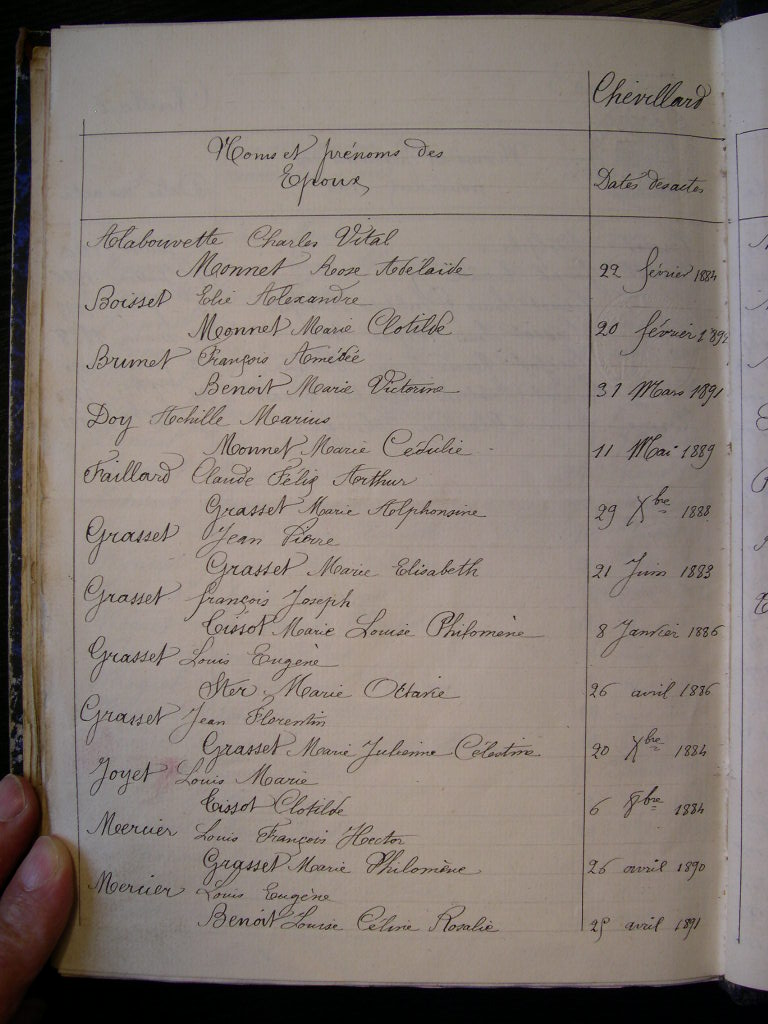 Chevillard
Noms et prénoms des
Epoux
Dates des actes
Alabouvette Charles Vital
Monnet Rose Adélaïde 22 février 1884
Boisset Elie Alexandre
Monnet Marie Clotilde 20 février
Brunet François Amédée
Benoit Marie Victorine 31 Mars 1891
Doy Achille Marius
Monnet Marie Cédulie 11 Mai 1889
Faillard Claude Félix Arthur
Grasset Marie Alphonsine 29 Xbre 1888
Grasset Jean Pierre
Grasset Marie Elisabeth 21 Juin 1883
Grasset françois Joseph
Tissot Marie Louise Philomène 8 Janvier 1886
Grasset Louis Eugène
Ster Marie Octavie 26 avril 1886
Grasset Jean Florentin
Grasset Marie Julienne Célestine 20 Xbre 1884
Joyet Louis Marie
Tissot Clotilde 6 8bre 1884
Mercier Louis François Hector
Grasset Marie Philomène 26 avril 1890
Mercier Louis Eugène
Benoit Louise Céline Rosalie avril 1891